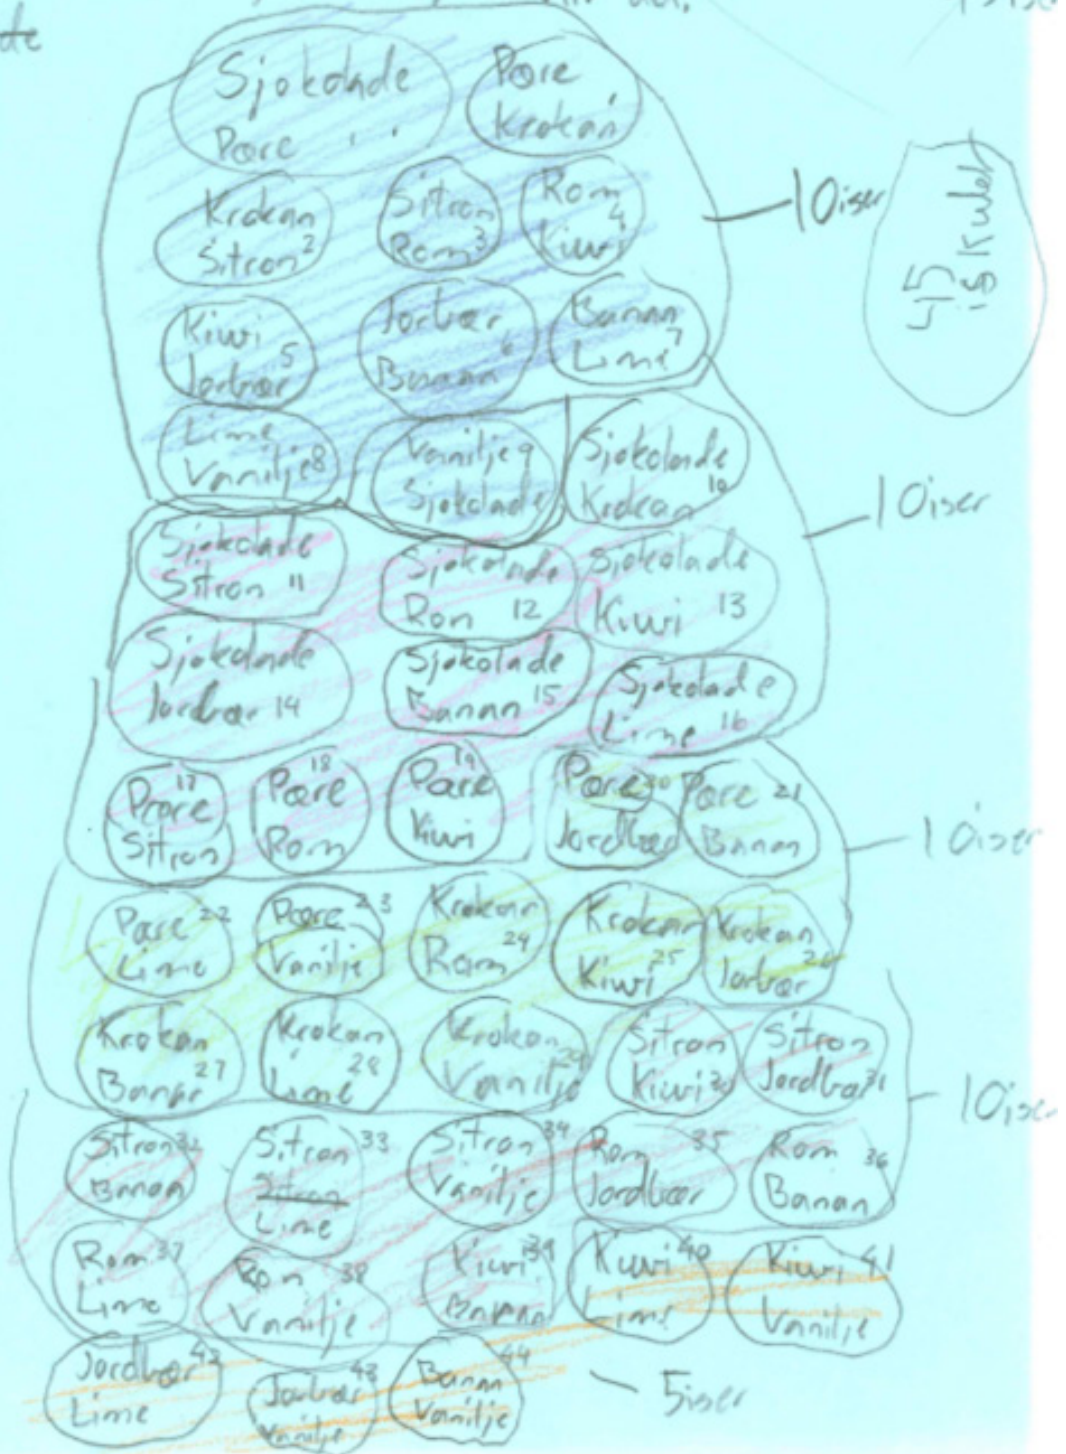 de
Sjokolade
Pære
Pære
Krokan
Krokan
Sitron 2
Sitron
Rom 3
Rom 4
Kiwi
10iser
45
iskuler
Kiwi 5
Jorbær
Jorbær 6
Banan
Banan
Lime 7
Lime
Vanilje 8
Vanilje 9
Sjokolade
Sjokolade
Krokan 10
10iser
Sjokolade
Sitron 11
Sjokolade
Rom 12
Sjokolade
Kiwi 13
Sjokolade
Jordbær 14
Sjokolade
Banan 15
Sjokolade
Lime 16
17
Pære
Sitron
18
Pære
Rom
19
Pære
Kiwi
Pære 20
Jordbær
Pære 21
Banan
10iser
Pære 22
Lime
Pære 23
Vanilje
Krokan
Rom 24
Krokan
Kiwi 25
Krokan
Jorbær 26
Krokan
Banan 27
Krokan
Lime 28
Krokan
Vanilje 29
Sitron
Kiwi 30
Sitron
Jordbær 31
10iser
Sitron 32
Banan
Sitron 33
Sitron
Lime
Sitron 34
Vanilje
Rom 35
Jordbær
Rom 36
Banan
Rom 37
Lime
Rom 38
Vanilje
Kiwi 39
Banan
Kiwi 40
Lime
Kiwi 41
Vanilje
Jordbær 42
Lime
Jorbær 43
Vanilje
Banan 44
Vanilje
5iser